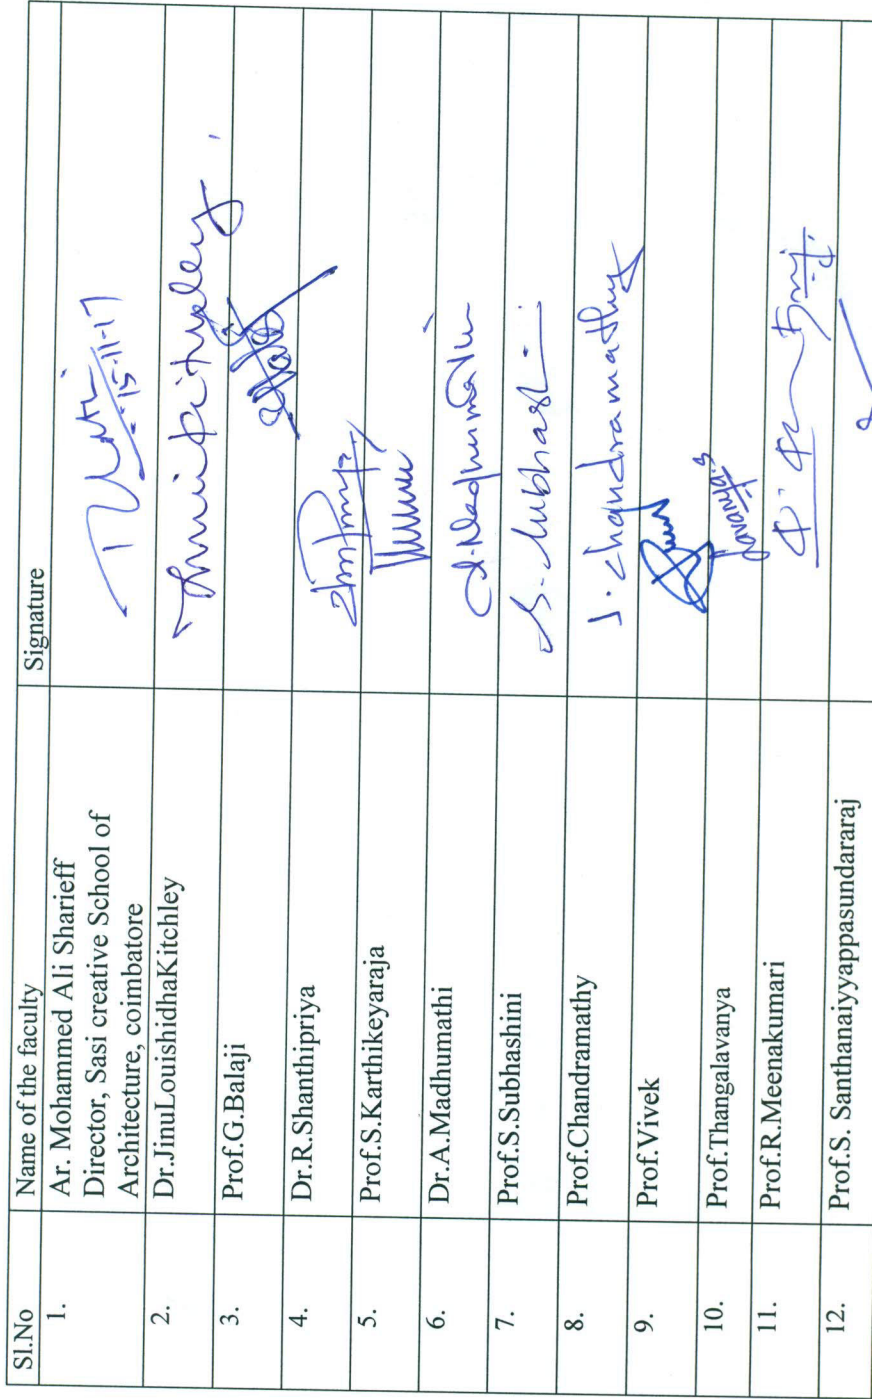 Sl.No Name of the faculty Signature
1. Ar. Mohammed Ali Sharieff
Director, Sasi creative School of
Architecture, coimbatore
15-11-17
2. Dr.JinuLouishidhaKitchley
3. Prof.G.Balaji
4. Dr.R.Shanthipriya
5. Prof.S.Karthikeyaraja
6. Dr.A.Madhumathi
7. Prof.S.Subhashini S. Subhashini
8. Prof.Chandramathy J. Chandramathy
9. Prof.Vivek
10. Prof.Thangalavanya Lavanya.S
11. Prof.R.Meenakumari
12. Prof.S. Santhanaiyyappasundararaj